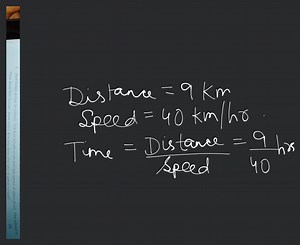 Distance = 9 Km
Speed = 40 km/hr.
Time = Distance/Speed = 9/40 hrs